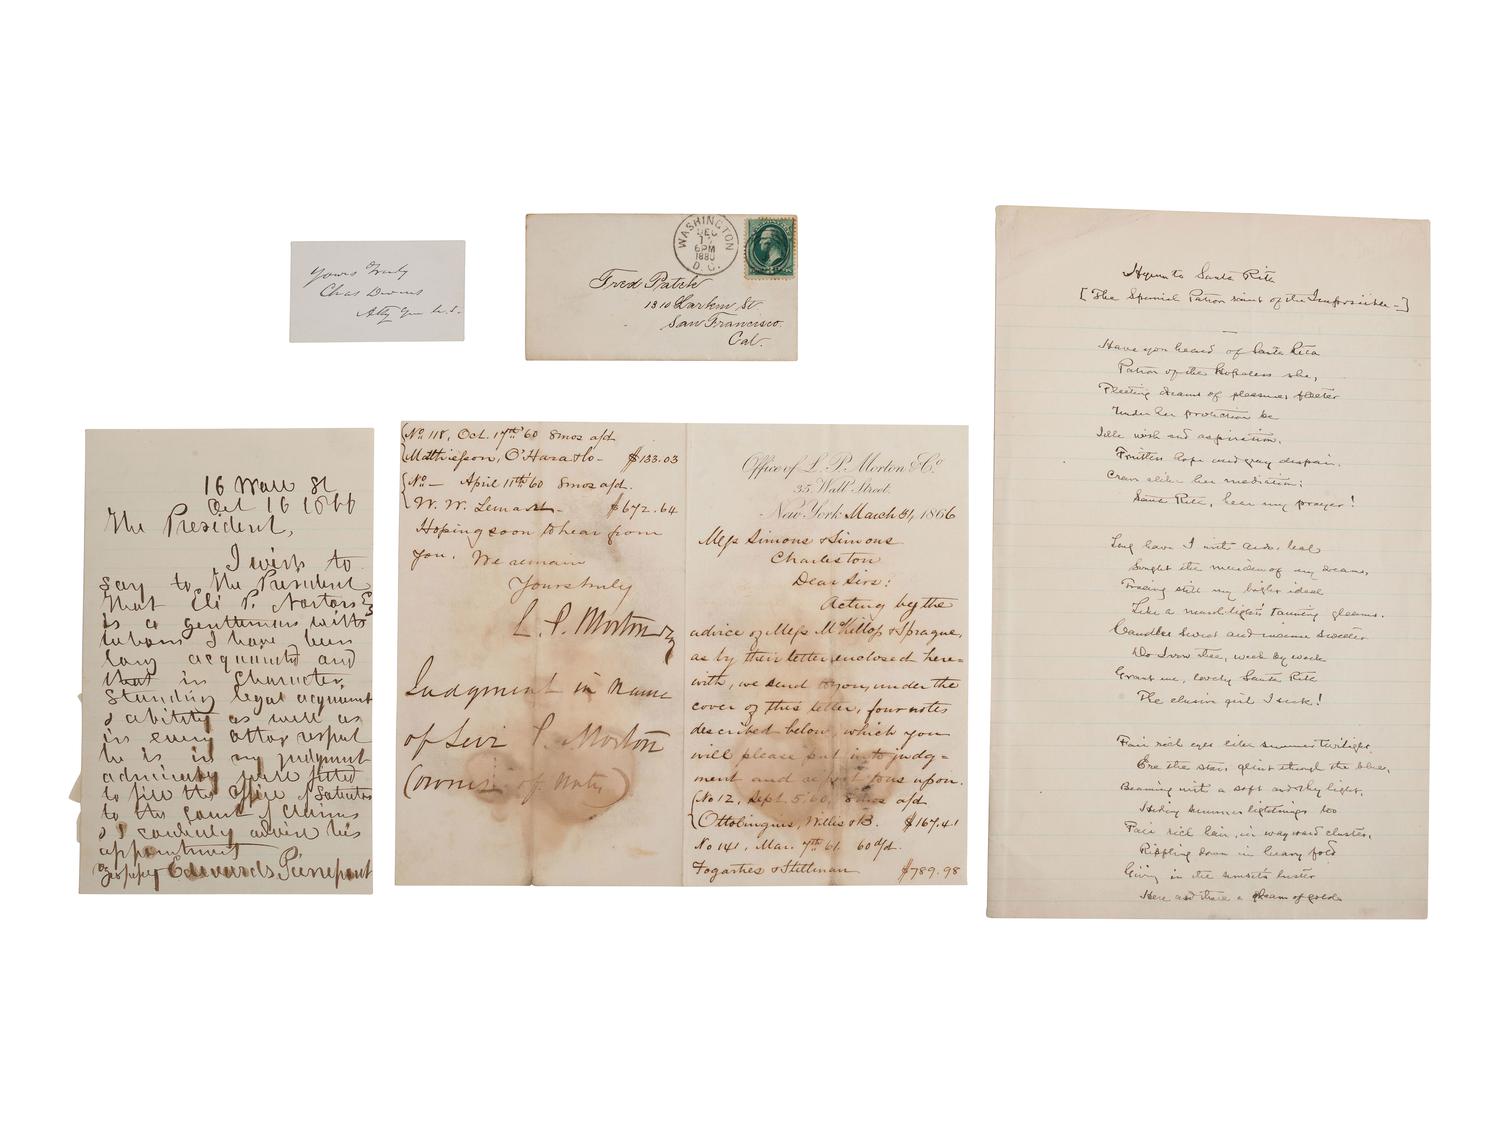 Yours Truly
Chas Devens
Atty Gen U.S.
WASHINGTON
DEC
17
6PM
1880
D.C.
Fred Patek
1310 Larkin St.
San Francisco.
Cal.
16 Wall St
Oct 16 1866
The President,
I wish to
say to the President
that Eli P. Norton Esq
is a gentleman with
whom I have been
long acquainted and
that in character,
standing legal acquirements
& ability as well as
in every other respect
he is in my judgment
admirably well fitted
to fill the office of Solicitor
to the Court of Claims
& I cordially advise his
appointment
Edwards Pierrepont
No 118, Oct. 17th 60 8mos a/d
Matthiessen, O'Hara & Co- $133.03
No - April 11th 60 8mos a/d.
W. W. Lemart- $672.64
Hoping soon to hear from
you. We remain
Yours truly
L. P. Morton & Co
Judgment in name
of Levi P. Morton
(owner of notes)
Office of L. P. Morton & Co
35 Wall Street.
New York March 31, 1866
Mess Simons & Simons
Charleston
Dear Sirs:
Acting by the
advice of Mess McKillop & Sprague,
as by their letter enclosed here=
with, we send to you, under the
cover of this letter, four notes
described below, which you
will please put into judg-
ment and report to us upon.
(No 12, Sept. 5' 60, 8 mos a/d
Ottolingius, Willis & B. $167.41
No 141, Mar. 7th 61 60 d/d.
Fogarties & Stillman $789.98
Hymn to Santa Rita
[The Special Patron saint of the Impossible-]
Have you heard of Santa Rita
Patron of the hopeless she,
Fleeting dreams of pleasures fleeter
Under her protection be
Idle wish and aspiration,
Fruitless hope and gray despair,
Crave alike her mediation;
Santa Rita, hear my prayer!
Long have I with ardor leal
Sought the maiden of my dreams,
Tracing still my bright ideal
Like a marsh-light's taunting gleams.
Candles sweet and incense sweeter
Do I vow thee, week by week
Grant me, lovely Santa Rita
The elusive girl I seek!
Fair rich eyes like summer twilight
Ere the stars glint through the blue,
Beaming with a soft and shy light,
Hiding summer lightnings too
Fair rich hair, in wayward cluster,
Rippling down in heavy fold
Giving in the sunset's luster
Here and there a gleam of gold